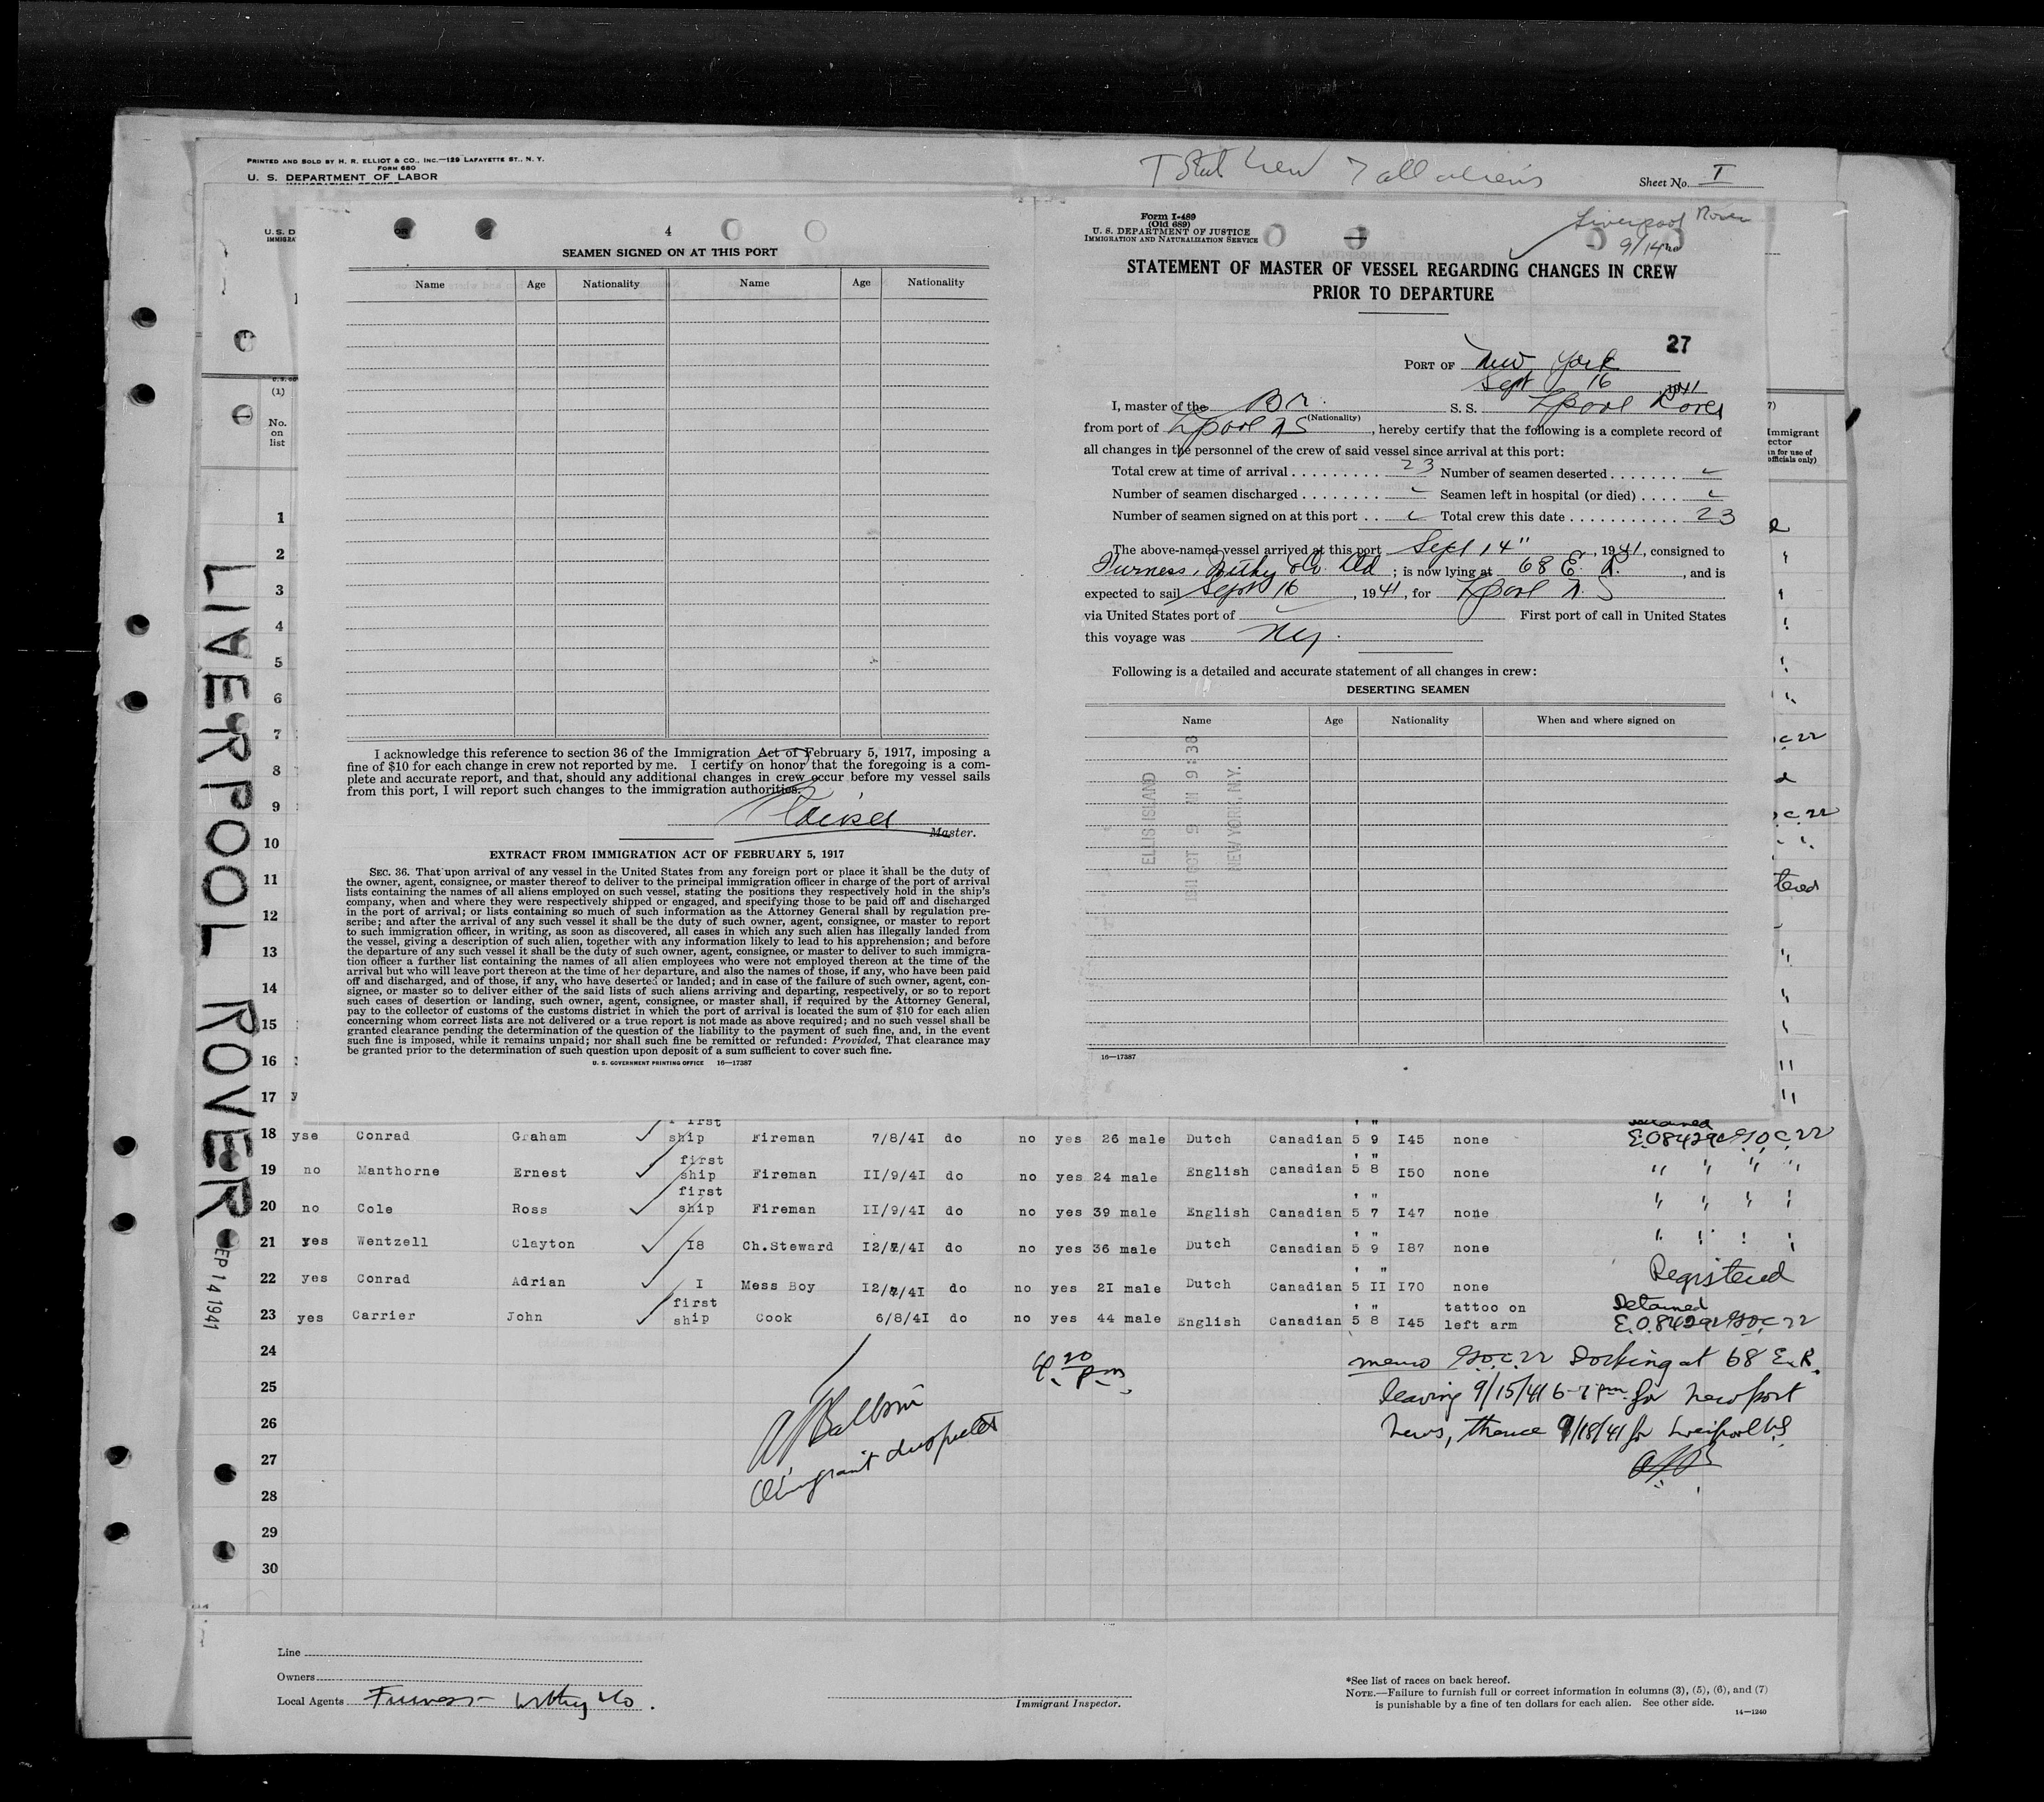 PRINTED AND SOLD BY H. R. ELLIOT & CO., INC.—129 LAFAYETTE ST., N. Y.
FORM 680
U. S. DEPARTMENT OF LABOR
7 all aliens
Sheet No. I
LIVERPOOL ROVER
EP 14 1941
U.S. D
IMMIGRA
(1)
No.
on
list
4
SEAMEN SIGNED ON AT THIS PORT
Name Age Nationality Name Age Nationality
I acknowledge this reference to section 36 of the Immigration Act of February 5, 1917, imposing a
fine of $10 for each change in crew not reported by me. I certify on honor that the foregoing is a com-
plete and accurate report, and that, should any additional changes in crew occur before my vessel sails
from this port, I will report such changes to the immigration authorities.
Master.
EXTRACT FROM IMMIGRATION ACT OF FEBRUARY 5, 1917
SEC. 36. That upon arrival of any vessel in the United States from any foreign port or place it shall be the duty of
the owner, agent, consignee, or master thereof to deliver to the principal immigration officer in charge of the port of arrival
lists containing the names of all aliens employed on such vessel, stating the positions they respectively hold in the ship's
company, when and where they were respectively shipped or engaged, and specifying those to be paid off and discharged
in the port of arrival; or lists containing so much of such information as the Attorney General shall by regulation pre-
scribe; and after the arrival of any such vessel it shall be the duty of such owner, agent, consignee, or master to report
to such immigration officer, in writing, as soon as discovered, all cases in which any such alien has illegally landed from
the vessel, giving a description of such alien, together with any information likely to lead to his apprehension; and before
the departure of any such vessel it shall be the duty of such owner, agent, consignee, or master to deliver to such immigra-
tion officer a further list containing the names of all alien employees who were not employed thereon at the time of the
arrival but who will leave port thereon at the time of her departure, and also the names of those, if any, who have been paid
off and discharged, and of those, if any, who have deserted or landed; and in case of the failure of such owner, agent, con-
signee, or master so to deliver either of the said lists of such aliens arriving and departing, respectively, or so to report
such cases of desertion or landing, such owner, agent, consignee, or master shall, if required by the Attorney General,
pay to the collector of customs of the customs district in which the port of arrival is located the sum of $10 for each alien
concerning whom correct lists are not delivered or a true report is not made as above required; and no such vessel shall be
granted clearance pending the determination of the question of the liability to the payment of such fine, and, in the event
such fine is imposed, while it remains unpaid; nor shall such fine be remitted or refunded: Provided, That clearance may
be granted prior to the determination of such question upon deposit of a sum sufficient to cover such fine.
U. S. GOVERNMENT PRINTING OFFICE 16—17387
Form I-489
(Old 689)
U. S. DEPARTMENT OF JUSTICE
IMMIGRATION AND NATURALIZATION SERVICE
Liverpool Rover
9/14
STATEMENT OF MASTER OF VESSEL REGARDING CHANGES IN CREW
PRIOR TO DEPARTURE
27
PORT OF New York
Sept 16 1941
I, master of the Br. S. S. Lpool Rover
(Nationality)
from port of Lpool NS, hereby certify that the following is a complete record of
all changes in the personnel of the crew of said vessel since arrival at this port:
Total crew at time of arrival 23 Number of seamen deserted
Number of seamen discharged Seamen left in hospital (or died)
Number of seamen signed on at this port Total crew this date 23
The above-named vessel arrived at this port Sept 14", 1941, consigned to
Furness, Withy & Co. Ltd; is now lying at 68 E. R., and is
expected to sail Sept 16, 1941, for Lpool N. S
via United States port of First port of call in United States
this voyage was NY.
Following is a detailed and accurate statement of all changes in crew:
DESERTING SEAMEN
Name Age Nationality When and where signed on
ELLIS ISLAND
1941 OCT 9 M 9:38
NEW YORK, N.Y.
16—17387
7)
Immigrant
ector
n for use of
officials only)
1
2
3
4
5
6
7
8
9
10
11
12
13
14
15
16
17
18 yse Conrad Graham first ship Fireman 7/8/4I do no yes 26 male Dutch Canadian 5' 9" I45 none Detained E.08429 C.22
19 no Manthorne Ernest first ship Fireman II/9/4I do no yes 24 male English Canadian 5' 8" I50 none " " " "
20 no Cole Ross first ship Fireman II/9/4I do no yes 39 male English Canadian 5' 7" I47 none " " " "
21 yes Wentzell Clayton I8 Ch.Steward I2/7/4I do no yes 36 male Dutch Canadian 5' 9" I87 none " " " "
22 yes Conrad Adrian I Mess Boy I2/7/4I do no yes 2I male Dutch Canadian 5' II" I70 none Registered
23 yes Carrier John first ship Cook 6/8/4I do no yes 44 male English Canadian 5' 8" I45 tattoo on left arm Detained E.08429 C 22
24
25
26
27
28
29
30
4 20 pm
Immigrant Inspector
memo C 22 Docking at 68 E.R.
leaving 9/15/41 6-7 pm for Newport
News, thence 9/18/41 for Liverpool NS
Line
Owners
Local Agents Furness Withy & Co.
Immigrant Inspector.
*See list of races on back hereof.
NOTE.—Failure to furnish full or correct information in columns (3), (5), (6), and (7)
is punishable by a fine of ten dollars for each alien. See other side.
14—1240